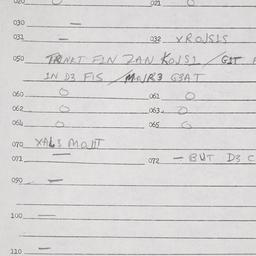 020 O 021 O
030 —
031 — 032 XROJS1S
050 TRNKT FIN ZAN KOJS1 / GIT
IN D3 FIS / MNR3 G3AT
060 O 061 O
062 O 063 O
064 O 065 O
070 XAL3 MOJIT
071 — 072 — BUT D3 C
090 —
100 —
110 —